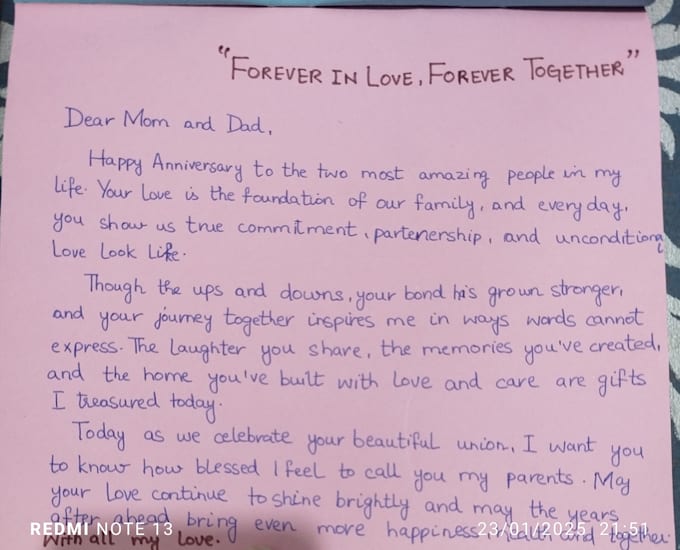 "FOREVER IN LOVE, FOREVER TOGETHER"
Dear Mom and Dad,
Happy Anniversary to the two most amazing people in my
life. Your Love is the foundation of our family, and every day,
you show us true commitment, partenership, and unconditiona
Love Look Life.
Though the ups and downs, your bond his grown stronger,
and your journey together inspires me in ways words cannot
express. The Laughter you share, the memories you've created,
and the home you've built with Love and care are gifts
I treasured today.
Today as we celebrate your beautiful union, I want you
to know how blessed I feel to call you my parents. May
your Love continue to shine brightly and may the years
after ahead bring even more happiness and together.
With all my Love.
REDMI NOTE 13
23/01/2025 21:51